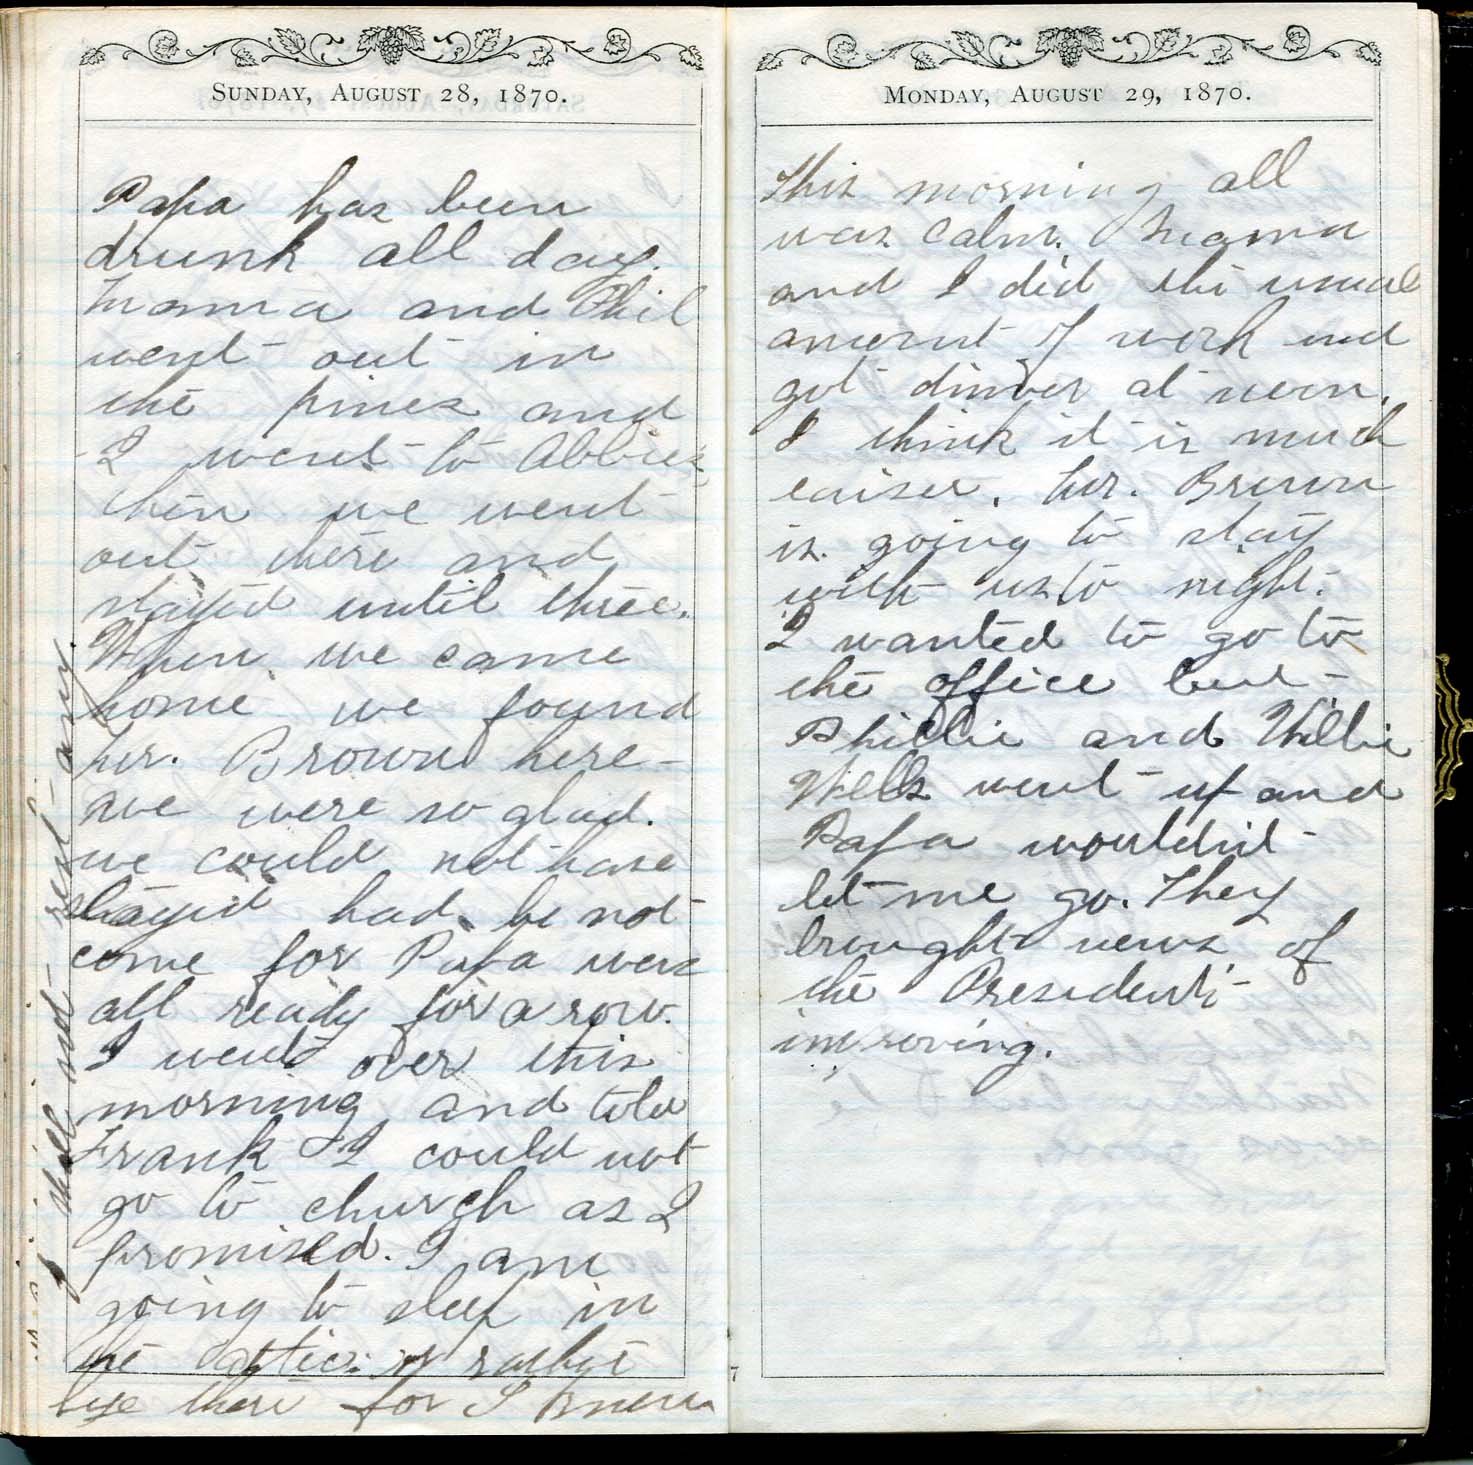 SUNDAY, AUGUST 28, 1870.
Papa has been
drunk all day.
Mama and Phil
went out in
the pines and
I went to Abbies
then we went
out there and
stayed until three.
When we came
home we found
Mr. Brown here
we were so glad.
we could not have
stayed had he not
come for Papa was
all ready for a row.
I went over this
morning and told
Frank I could not
go to church as I
promised. I am
going to sleep in
the attic. or rather
lye there for I know
I shall not rest any
MONDAY, AUGUST 29, 1870.
This morning all
was calm. Mama
and I did the usual
amount of work and
got dinner at noon.
I think it is much
easier. Mr. Brown
is going to stay
with us to night.
I wanted to go to
the office but
Phillie and Willie
Wells went up and
Papa wouldn't
let me go. They
brought news of
the President's
improving.